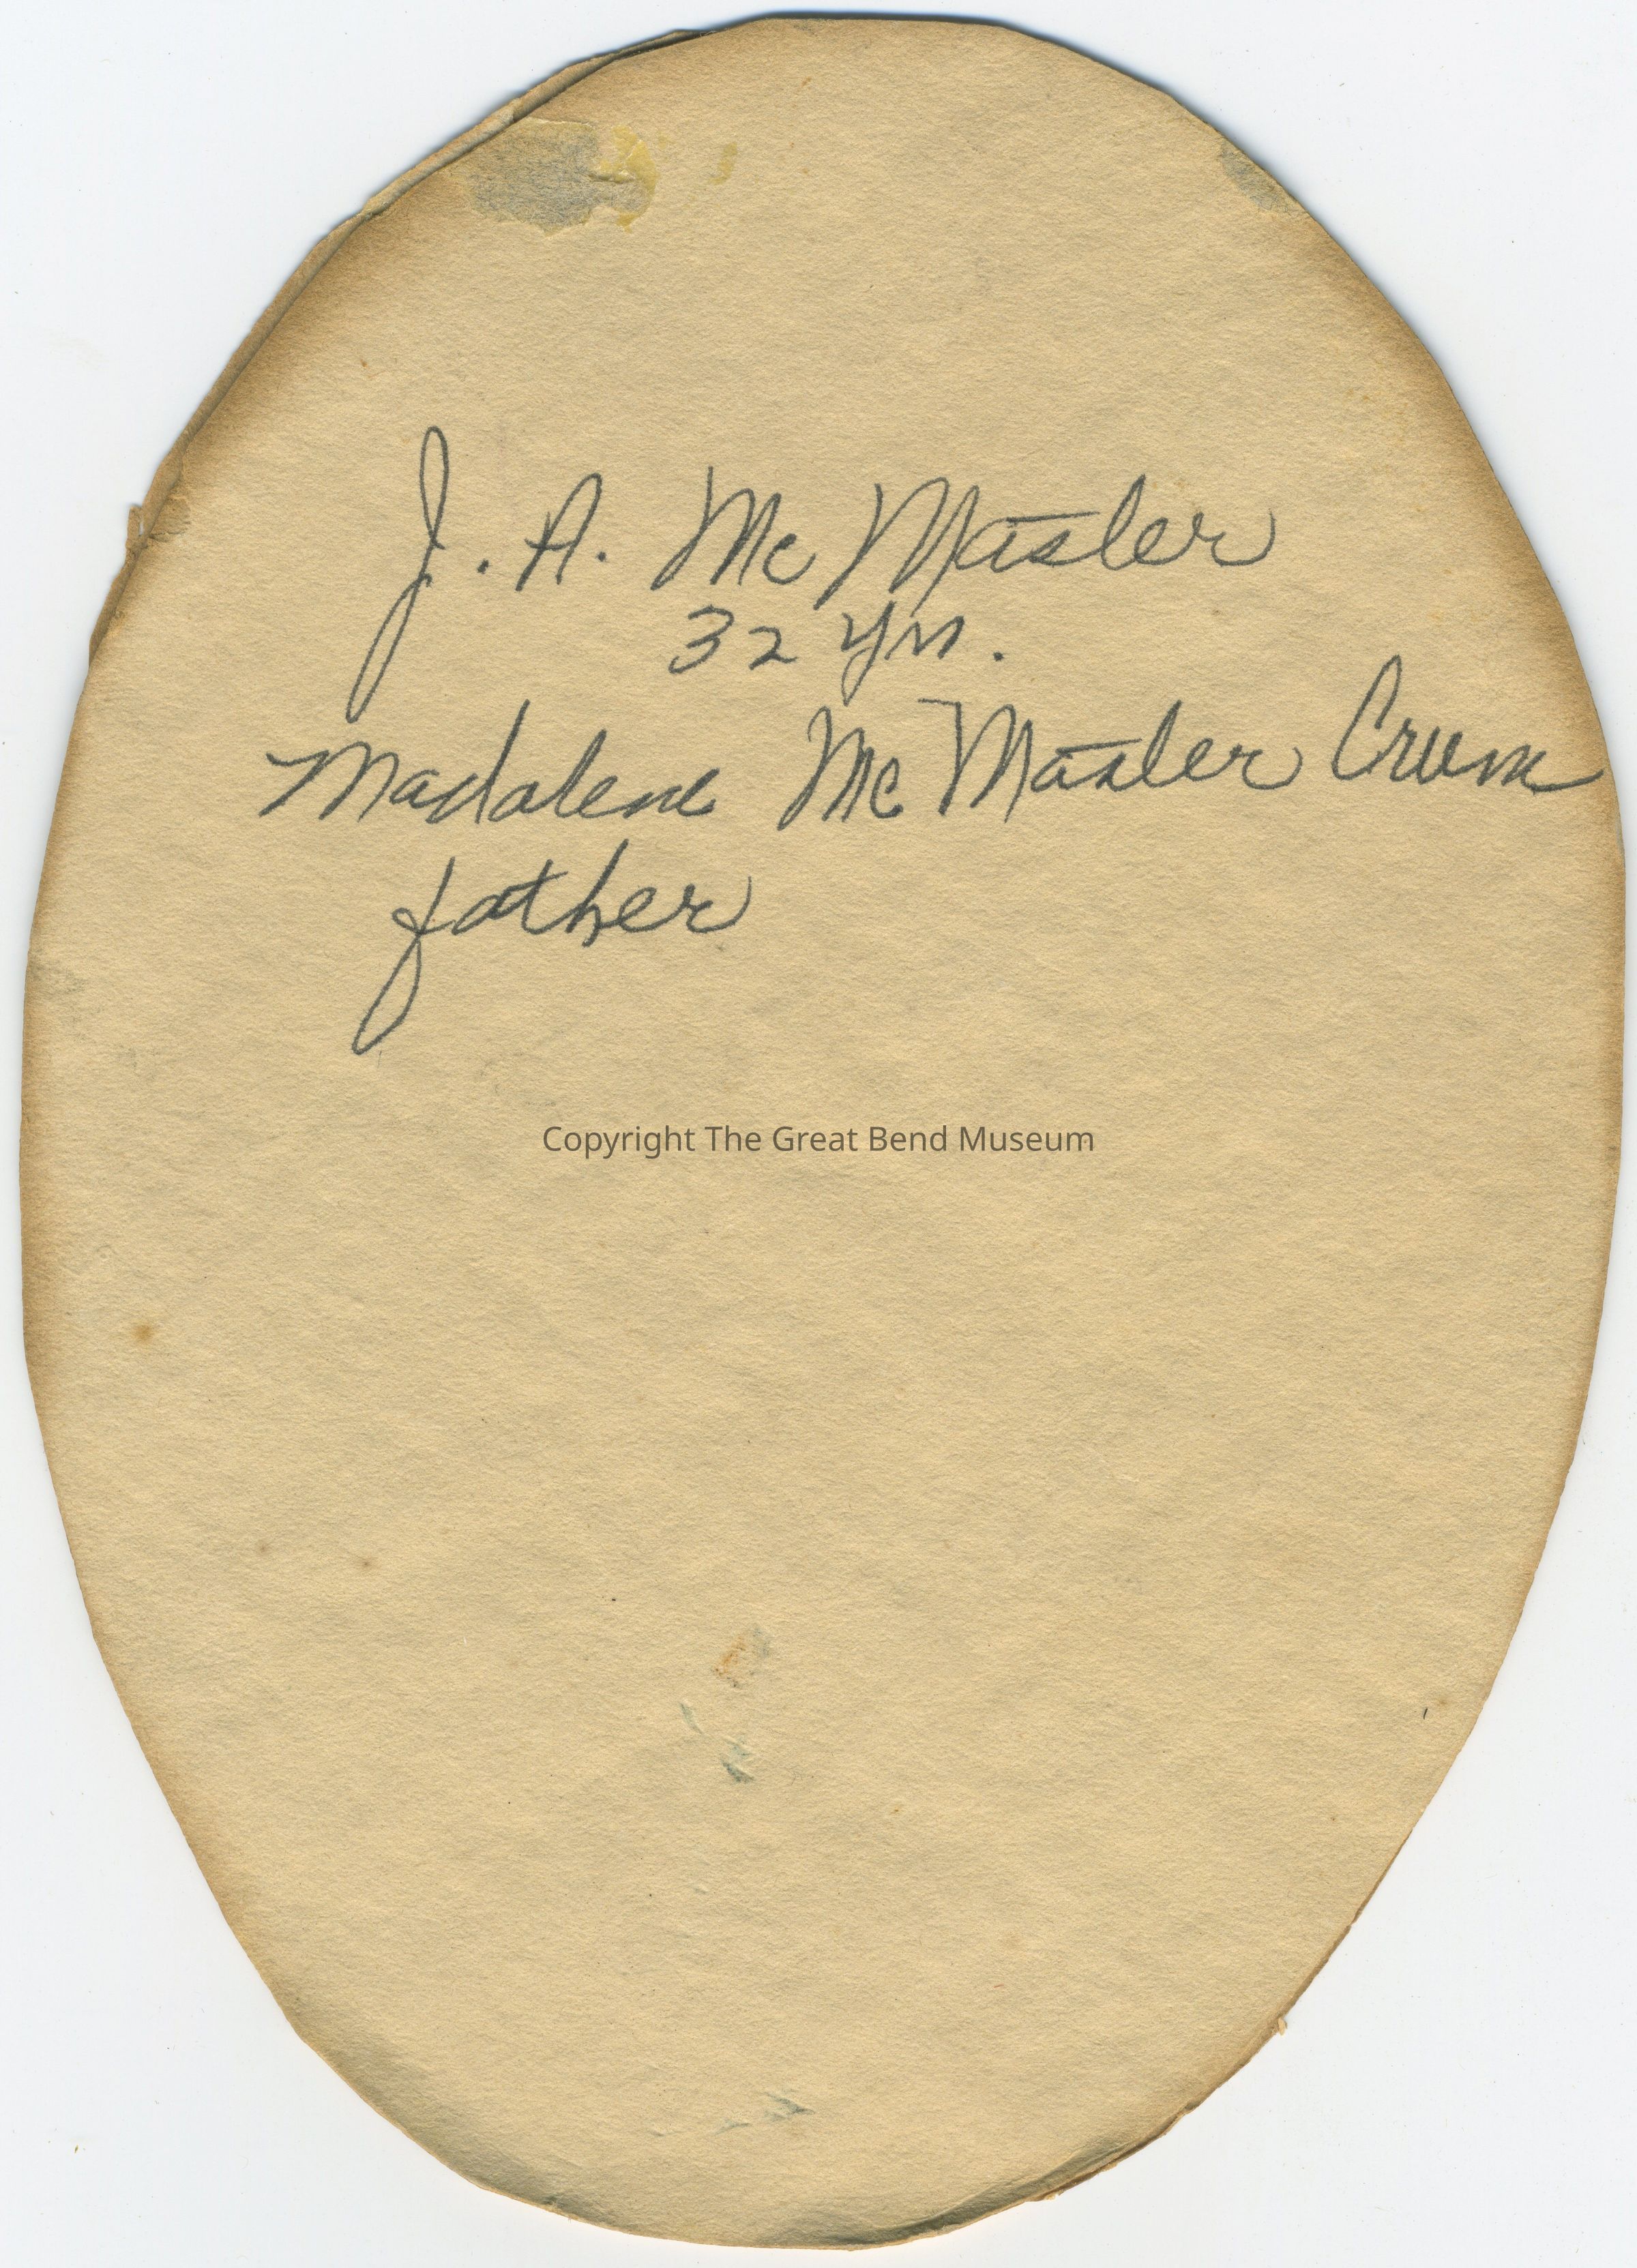 J. A. Mc Master
32 yrs.
Madalene Mc Master Crum
father
Copyright The Great Bend Museum